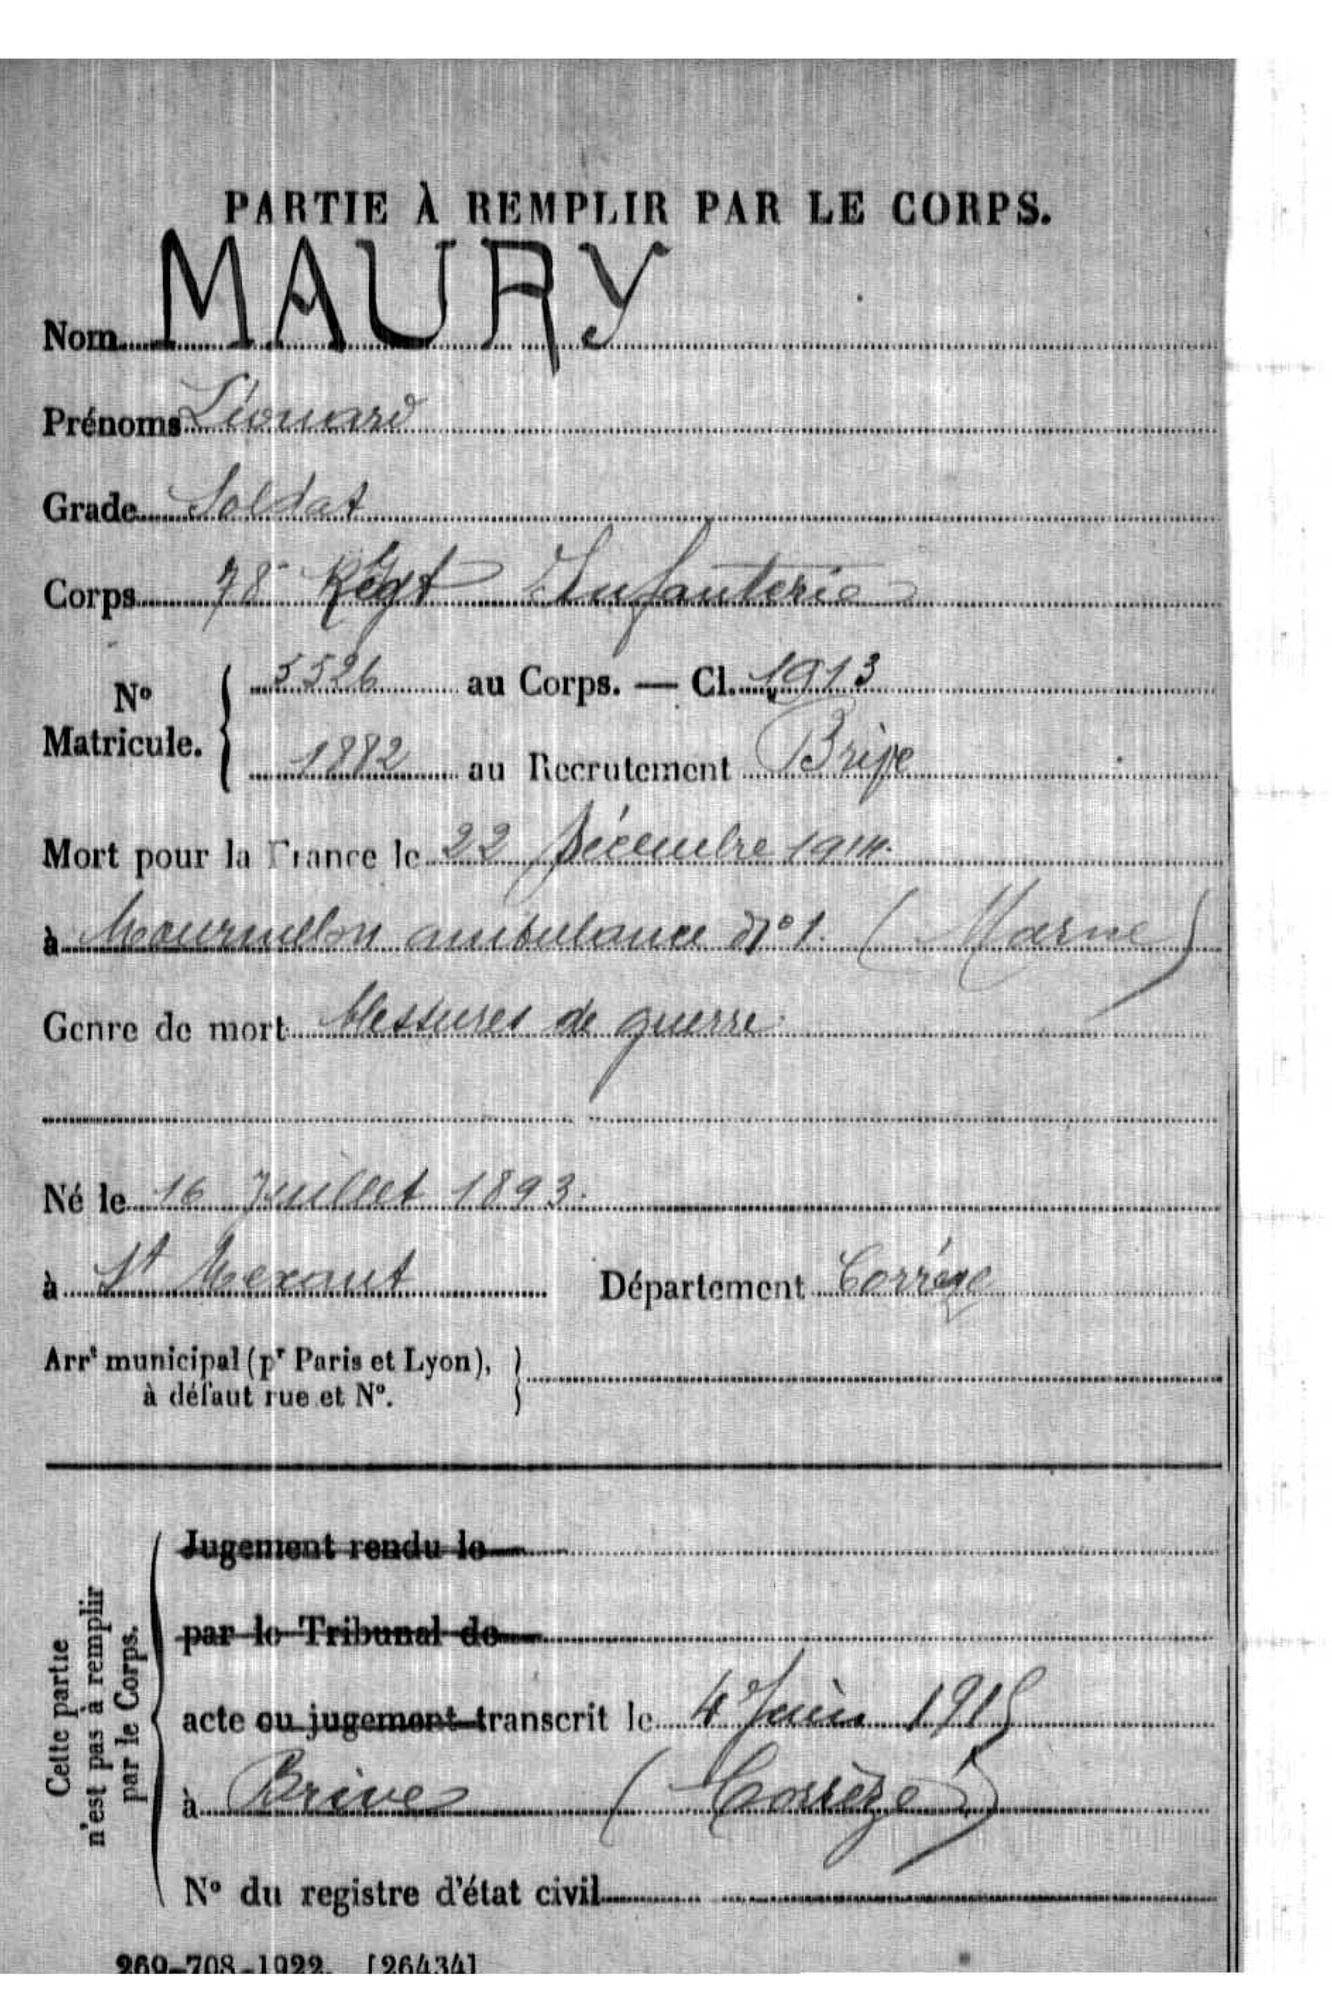 PARTIE À REMPLIR PAR LE CORPS.
Nom MAURY
Prénoms Léonard
Grade Soldat
Corps 78e Régt Infanterie
N° Matricule. { 5526 au Corps. — Cl. 1913
1882 au Recrutement Brive
Mort pour la France le 22 Décembre 1914.
à Mourmelon ambulance N° 1. (Marne)
Genre de mort blessures de guerre.
Né le 16 Juillet 1893.
à St Mexant Département Corrèze
Arrt municipal (pr Paris et Lyon), }
à défaut rue et N°.
Cette partie
n'est pas à remplir
par le Corps.
Jugement rendu le
par le Tribunal de
acte ou jugement transcrit le 4 Juin 1915
à Brive (Corrèze)
N° du registre d'état civil
269-708-1922. [26434]